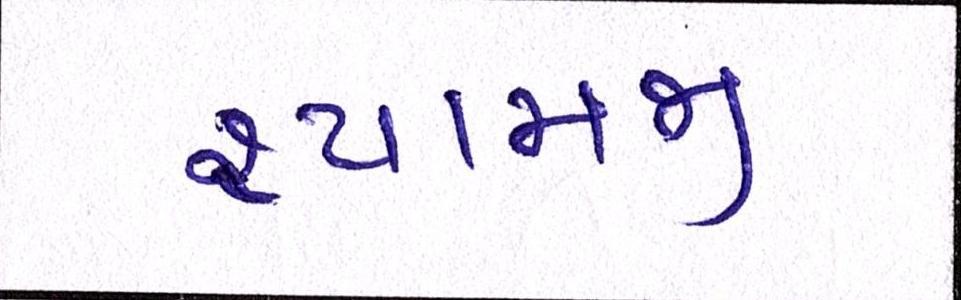 શ્યામજી